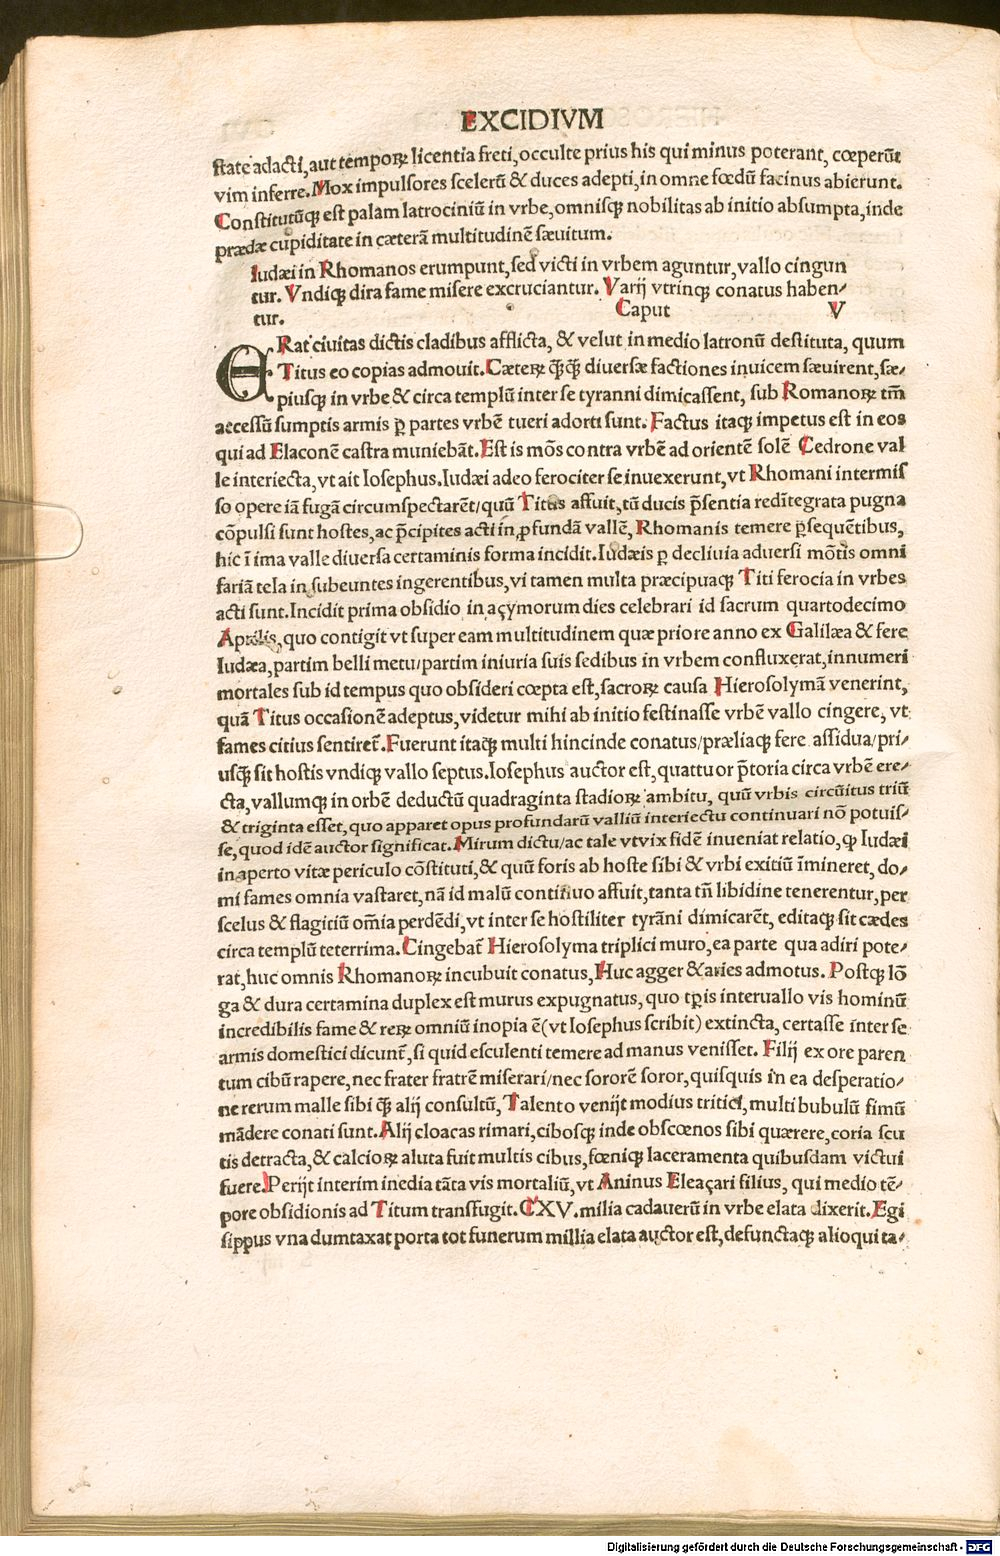 EXCIDIVM
state adacti, aut temporꝝ licentia freti, occulte prius his qui minus poterant, cœperūt
vim inferre. Mox impulsores scelerū & duces adepti, in omne fœdū facinus abierunt.
Constitutūqꝫ est palam latrociniū in vrbe, omnisqꝫ nobilitas ab initio absumpta, inde
prædæ cupiditate in cæterā multitudinē sæuitum.
Iudæi in Rhomanos erumpunt, sed victi in vrbem aguntur, vallo cingun
tur. Vndiqꝫ dira fame misere excruciantur. Varij vtrinqꝫ conatus haben⸗
tur. Caput V
ERat ciuitas dictis cladibus afflicta, & velut in medio latronū destituta, quum
Titus eo copias admouit. Cæteꝝ qꝫ̄qꝫ̄ diuersæ factiones inuicem sæuirent, sæ⸗
piusqꝫ in vrbe & circa templū inter se tyranni dimicassent, sub Romanoꝝ tm̄
accessū sumptis armis ꝑ partes vrbē tueri adorti sunt. Factus itaqꝫ impetus est in eos
qui ad Elaconē castra muniebāt. Est is mōs contra vrbē ad orientē solē Cedrone val
le interiecta, vt ait Iosephus. Iudæi adeo ferociter se inuexerunt, vt Rhomani intermis
so opere iā fugā circumspectarēt/quū Titus affuit, tū ducis p̄sentia redītegrata pugna
cōpulsi sunt hostes, ac p̄cipites acti in ꝓfundā vallē, Rhomanis temere ꝑsequētibus,
hic ī ima valle diuersa certaminis forma incidit. Iudæis ꝑ decliuia aduersi mōtis omni
fariā tela in subeuntes ingerentibus, vi tamen multa præcipuaqꝫ Titi ferocia in vrbes
acti sunt. Incidit prima obsidio in açymorum dies celebrari id sacrum quartodecimo
Aprilis, quo contigit vt super eam multitudinem quæ priore anno ex Galilæa & fere
Iudæa, partim belli metu/partim iniuria suis sedibus in vrbem confluxerat, innumeri
mortales sub id tempus quo obsideri cœpta est, sacroꝝ causa Hierosolymā venerint,
quā Titus occasionē adeptus, videtur mihi ab initio festinasse vrbē vallo cingere, vt
fames citius sentiret̄. Fuerunt itaqꝫ multi hincinde conatus/præliaqꝫ fere assidua/pri⸗
usqꝫ sit hostis vndiqꝫ vallo septus. Iosephus auctor est, quattuor p̄toria circa vrbē ere⸗
cta, vallumqꝫ in orbē deductū quadraginta stadioꝝ ambitu, quū vrbis circūitus triū
& triginta esset, quo apparet opus profundarū valliū interiectu continuari nō potuis⸗
se, quod idē auctor significat. Mirum dictu/ac tale vtvix fidē inueniat relatio, ꝙ Iudæi
in aperto vitæ periculo cōstituti, & quū foris ab hoste sibi & vrbi exitiū īmineret, do⸗
mi fames omnia vastaret, nā id malū continuo affuit, tanta tn̄ libidine tenerentur, per
scelus & flagitiū om̄ia perdēdi, vt inter se hostiliter tyrāni dimicarēt, editaqꝫ sit cædes
circa templū teterrima. Cingebat̄ Hierosolyma triplici muro, ea parte qua adiri pote⸗
rat, huc omnis Rhomanoꝝ incubuit conatus, Huc agger & aries admotus. Postqꝫ lō
ga & dura certamina duplex est murus expugnatus, quo tꝑis interuallo vis hominū
incredibilis fame & reꝝ omniū inopia ē(vt Iosephus scribit) extincta, certasse inter se
armis domestici dicunt̄, si quid esculenti temere ad manus venisset. Filij ex ore paren
tum cibū rapere, nec frater fratrē miserari/nec sororē soror, quisquis in ea desperatio⸗
ne rerum malle sibi qꝫ̄ alij consultū, Talento venijt modius tritici, multi bubulū fimū
mādere conati sunt. Alij cloacas rimari, cibosqꝫ inde obscœnos sibi quærere, coria scu
tis detracta, & calcioꝝ aluta fuit multis cibus, fœniqꝫ laceramenta quibusdam victui
fuere. Perijt interim inedia tāta vis mortaliū, vt Aninus Eleaçari filius, qui medio tē⸗
pore obsidionis ad Titum transfugit. CXV. milia cadauerū in vrbe elata dixerit. Egi
sippus vna dumtaxat porta tot funerum millia elata auctor est, defunctaqꝫ alioqui ta⸗
Digitalisierung gefördert durch die Deutsche Forschungsgemeinschaft - DFG